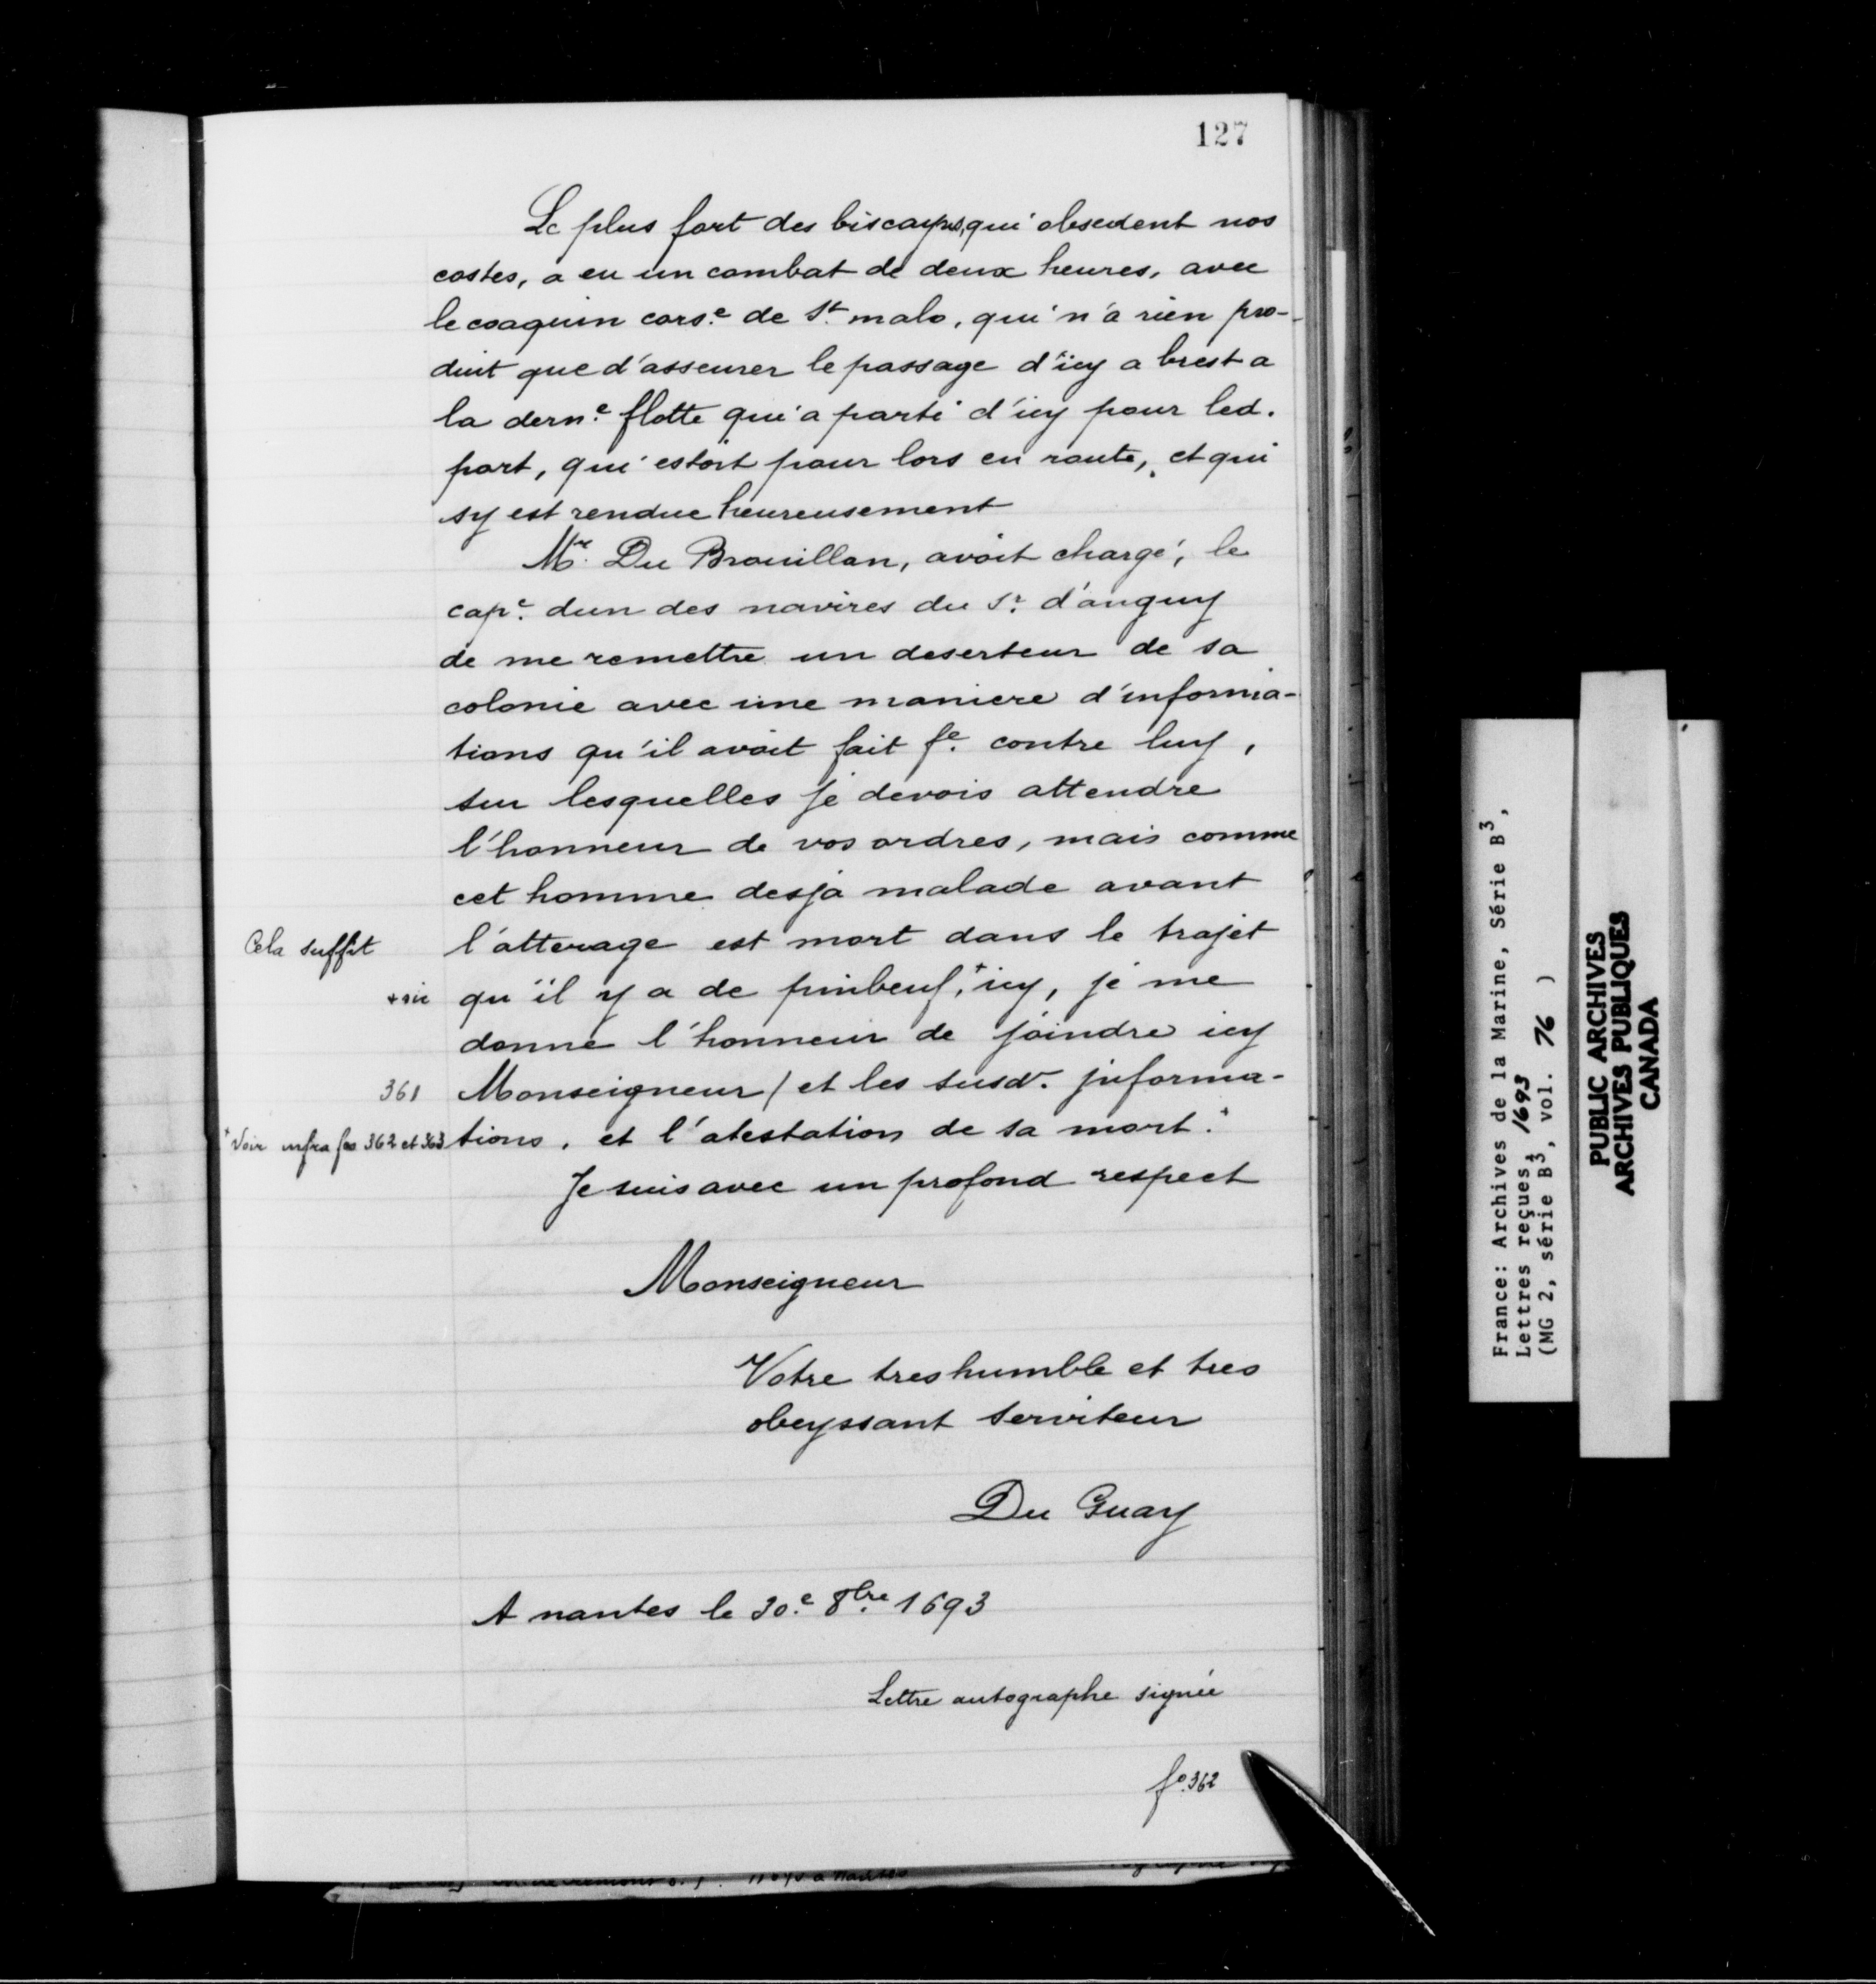 127
Le plus fort des biscayns, qui obsedent nos
costes, a eu un combat de deux heures, avec
le coaquin cors.e de St. malo, qui n'a rien pro-
duit que d'asseurer le passage d'icy a brest a
la dern.e flotte qui a parti d'icy pour led.
port, qui estoit pour lors en route, et qui
sy est rendue heureusement
Mr. Du Brouillan, avoit chargé, le
cap.e dun des navires du Sr. d'anguy
de me remettre un deserteur de sa
colonie avec une maniere d'informa-
tions qu'il avoit fait fe. contre luy,
sur lesquelles je devois attendre
l'honneur de vos ordres, mais comme
cet homme desja malade avant
Cela suffit
l'atterage est mort dans le trajet
+ sic
qu'il y a de pinbeuf,+ icy, je me
donne l'honneur de joindre icy
361
Monseigneur / et les susd. jnforma-
+ Voir infra fos 362 et 363
tions, et l'atestation de sa mort.+
Je suis avec un profond respect
Monseigneur
Votre tres humble et tres
obeyssant serviteur
Du Guay
A nantes le 30.e 8bre. 1693
Lettre autographe signée
fo. 362
France: Archives de la Marine, Série B3,
Lettres reçues, 1693
(MG 2, série B3, vol. 76 )
PUBLIC ARCHIVES
ARCHIVES PUBLIQUES
CANADA